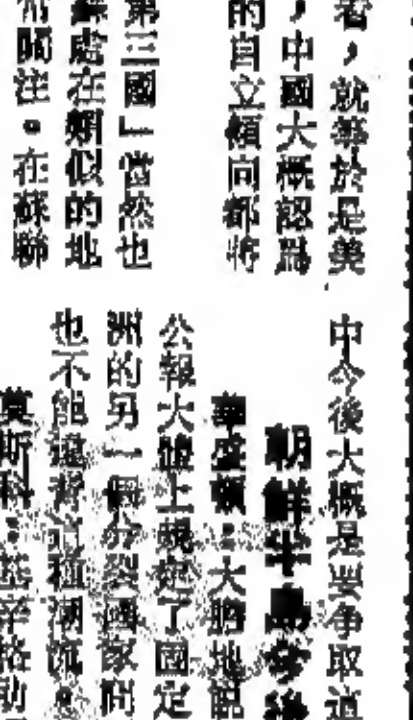 看，就等於是美
，中國大概認爲
的自立傾向都將
第三國」當然也
蘇處在類似的地
常關注。在蘇聯
中今後大概是要爭取這
朝鮮半島今後
華盛頓：大膽地説
公報大體上規定了國定
洲的另一個分裂國家問
也不能違背這種潮流。
莫斯科：基辛格助